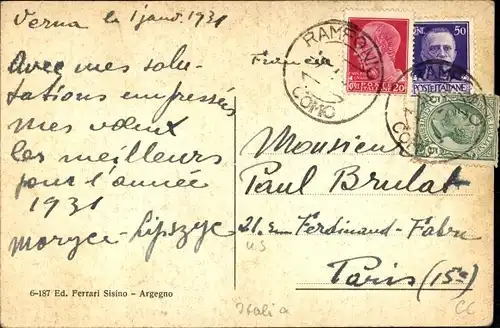 Verna le 1 janv. 1931
Avec mes salu-
tations empressées
mes voeux
les meilleurs
pour l'année
1931
Moryce Lipszyc
6-187 Ed. Ferrari Sisino - Argegno
Francia
RAMPONIO
COMO
20
50
POSTE ITALIANE
COMO
Monsieur
Paul Brulat
21. rue Ferdinand-Fabre
Paris (15e)
Italia